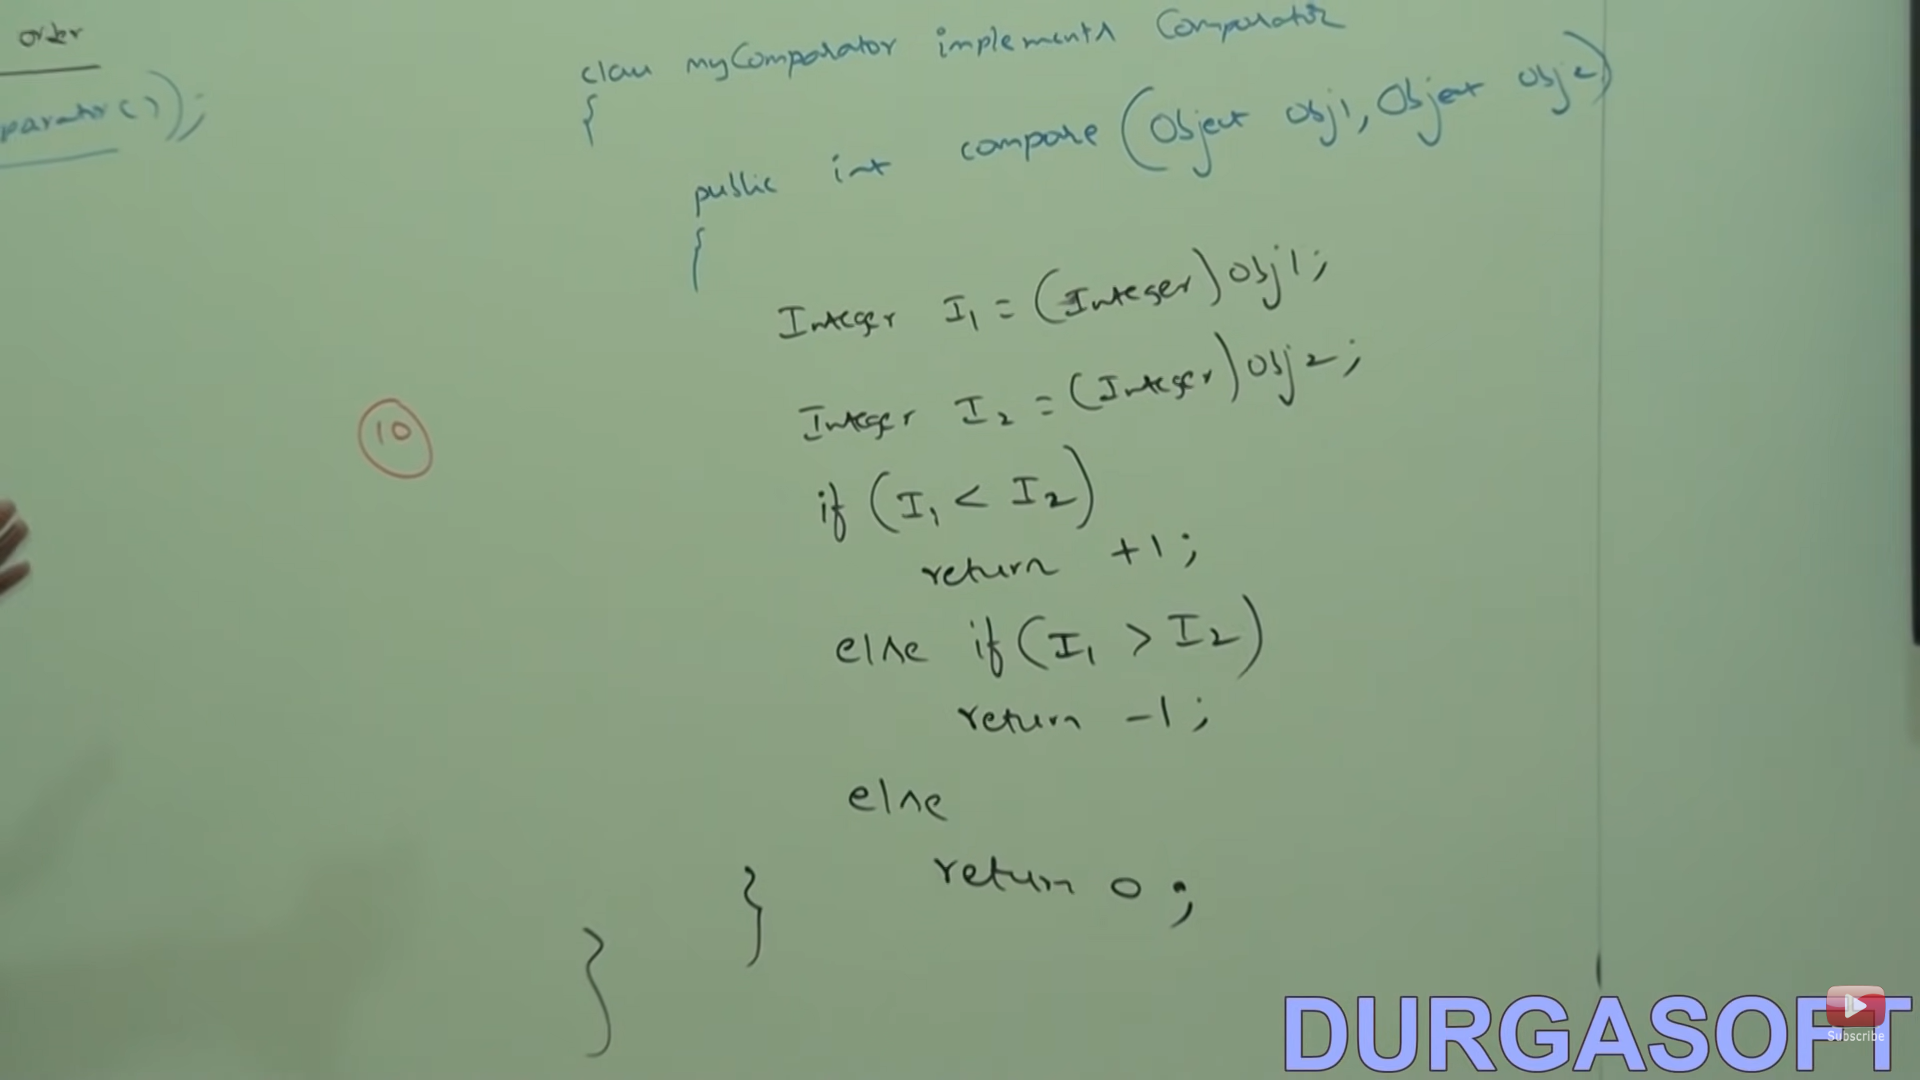 order
parator());
class myComparator implements Comparator
{
public int compare (Object obj1, Object obj2)
{
Integer I1 = (Integer) obj1;
Integer I2 = (Integer) obj2;
10
if (I1 < I2)
return +1;
else if (I1 > I2)
return -1;
else
return 0;
}
}
DURGASOFT
Subscribe